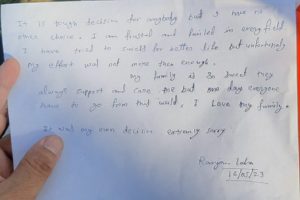 In is tough decision for anybody but I have no
other choice. I am frustad and failed in every field
I have tried to small for better life but unfortunely
my effort was not more then enough.
my family is so sweet they
always support and care me but one day everyone
have to go from this world. I Love my family.
It was my own decision extremly sorry
16/05/23